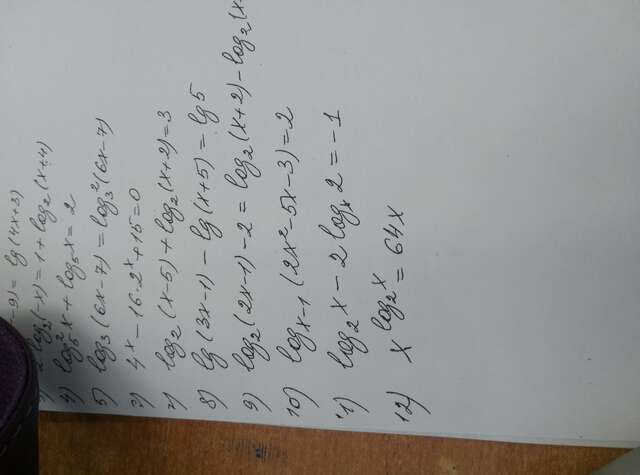 - 9) = lg(4x+3)
log₂(-x) = 1 + log₂(x+4)
4) log₅²x + log₅x = 2
5) log₃(6x-7) = log₃²(6x-7)
4ˣ - 16·2ˣ + 15 = 0
log₂(x-5) + log₂(x+2) = 3
8) lg(3x-1) - lg(x+5) = lg5
9) log₂(2x-1) - 2 = log₂(x+2) - log₂(x
10) logₓ₋₁(2x²-5x-3) = 2
11) log₂x - 2logₓ2 = -1
12) x^log₂x = 64x